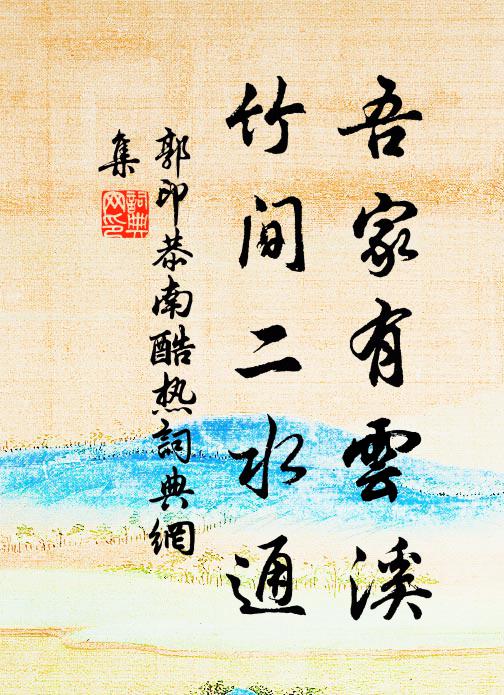 吾家有雲溪
竹间二水通
郭印恭南酷热詞典網
集
詞典
网印